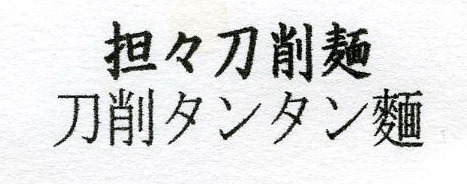 担々刀削麺
刀削タンタン麵